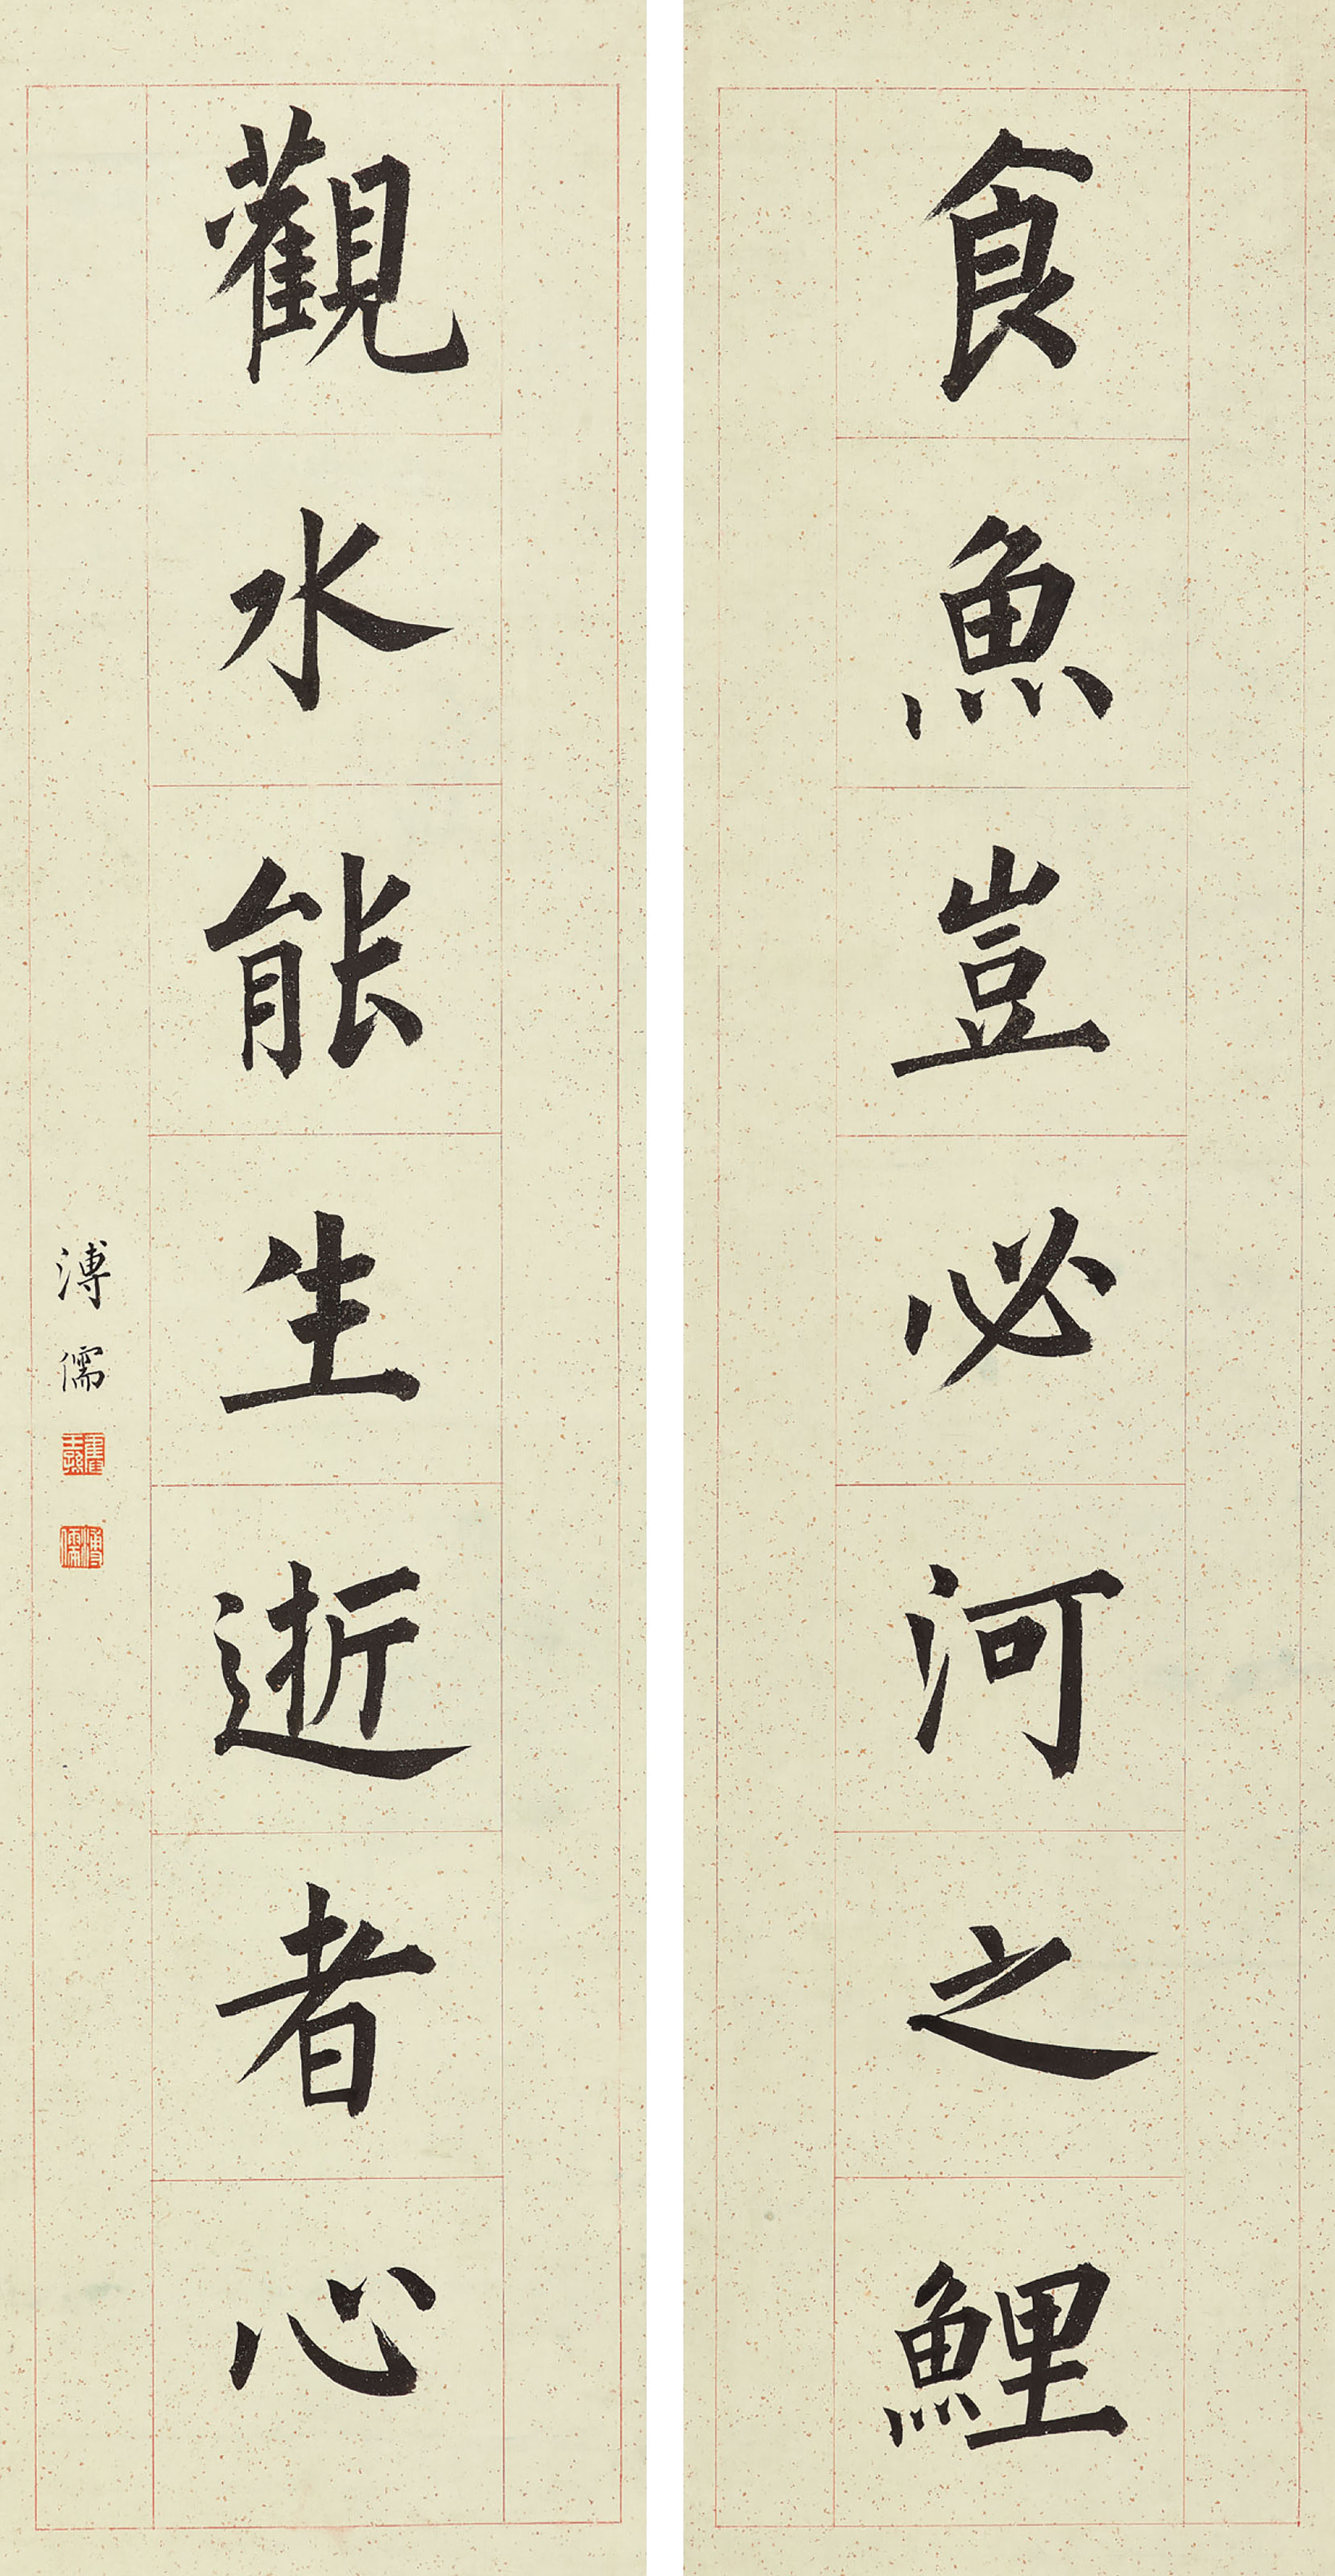 食魚豈必河之鯉
觀水能生逝者心
溥儒
溥儒